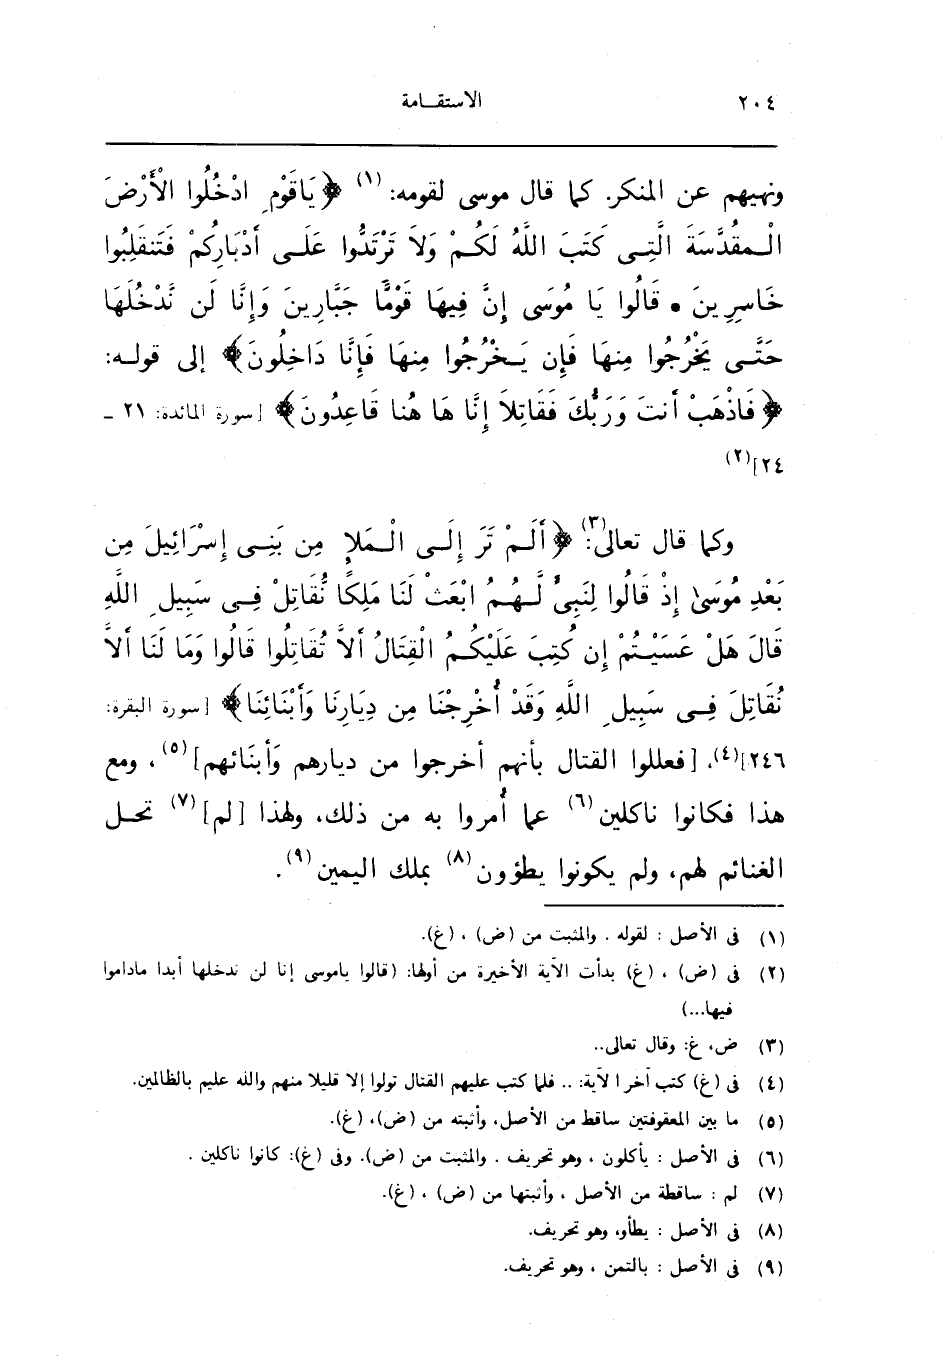 ٢٠٤ الاستقـامة
ونهيهم عن المنكر. كما قال موسى لقومه: (١) ﴿يَاقَوْمِ ادْخُلُوا الْأَرْضَ
الْـمقُدَّسَةَ الَّتِـى كَتَبَ اللَّهُ لَكُـمْ وَلاَ تَرْتَدُّوا عَلَـى أَدْبَارِكُمْ فَتَنقَلِبُوا
خَاسِرِينَ • قَالُوا يَا مُوسَى إِنَّ فِيهَا قَوْمًا جَبَّارِينَ وَإِنَّا لَن نَّدْخُلَهَا
حَتَّـى يَخْرُجُوا مِنهَا فَإِن يَـخْرُجُوا مِنهَا فَإِنَّا دَاخِلُونَ﴾ إلى قولـه:
﴿فَاذْهَبْ أَنتَ وَرَبُّكَ فَقَاتِلاَ إِنَّا هَا هُنا قَاعِدُونَ﴾ [سورة المائدة: ٢١ ـ
٢٤](٢)
وكما قال تعالى(٣): ﴿أَلَـمْ تَرَ إِلَـى الْـمَلإِ مِن بَنِـى إِسْرَائِيلَ مِن
بَعْدِ مُوسَىٰ إِذْ قَالُوا لِنَبِىٍّ لَّـهُـمُ ابْعَثْ لَنَا مَلِكًا نُّقَاتِلْ فِـى سَبِيلِ اللَّهِ
قَالَ هَلْ عَسَيْـتُمْ إِن كُتِبَ عَلَيْكُـمُ الْقِتَالُ أَلاَّ تُقَاتِلُوا قَالُوا وَمَا لَنَا أَلاَّ
نُقَاتِلَ فِـى سَبِيلِ اللَّهِ وَقَدْ أُخْرِجْنَا مِن دِيَارِنَا وَأَبْنَائِنَا﴾ [سورة البقرة:
٢٤٦](٤). [فعللوا القتال بأنهم أخرجوا من ديارهم وَأبنَائهم](٥)، ومع
هذا فكانوا ناكلين(٦) عما أُمروا به من ذلك، ولهذا [لم](٧) تحـل
الغنائم لهم، ولم يكونوا يطؤون(٨) بملك اليمين(٩).
(١) فى الأصل : لقوله . والمثبت من (ض) ، (غ).
(٢) فى (ض) ، (غ) بدأت الآية الأخيرة من أولها: (قالوا ياموسى إنا لن ندخلها أبدا ماداموا
فيها...)
(٣) ض، غ: وقال تعالى..
(٤) فى (غ) كتب آخر الآية: .. فلما كتب عليهم القتال تولوا إلا قليلا منهم والله عليم بالظالمين.
(٥) ما بين المعقوفتين ساقط من الأصل، وأثبته من (ض)، (غ).
(٦) فى الأصل : يأكلون ، وهو تحريف . والمثبت من (ض). وفى (غ): كانوا ناكلين .
(٧) لم : ساقطة من الأصل ، وأثبتها من (ض) ، (غ).
(٨) فى الأصل : يطأو، وهو تحريف.
(٩) فى الأصل : بالتمن ، وهو تحريف.